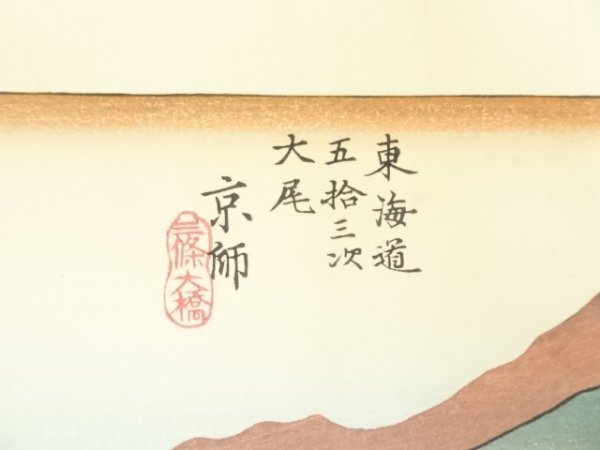 東海道
五拾三次
大尾
京師
三條大橋